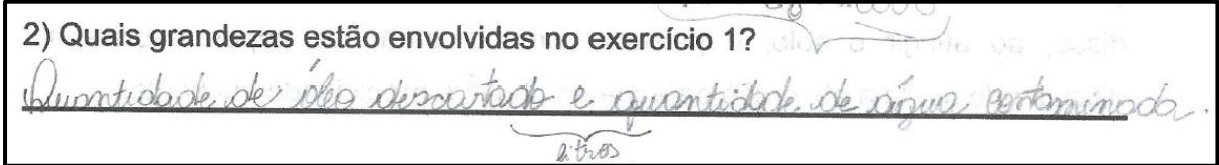 2) Quais grandezas estão envolvidas no exercício 1?
Quantidade de óleo descartado e quantidade de água contaminada.
litros